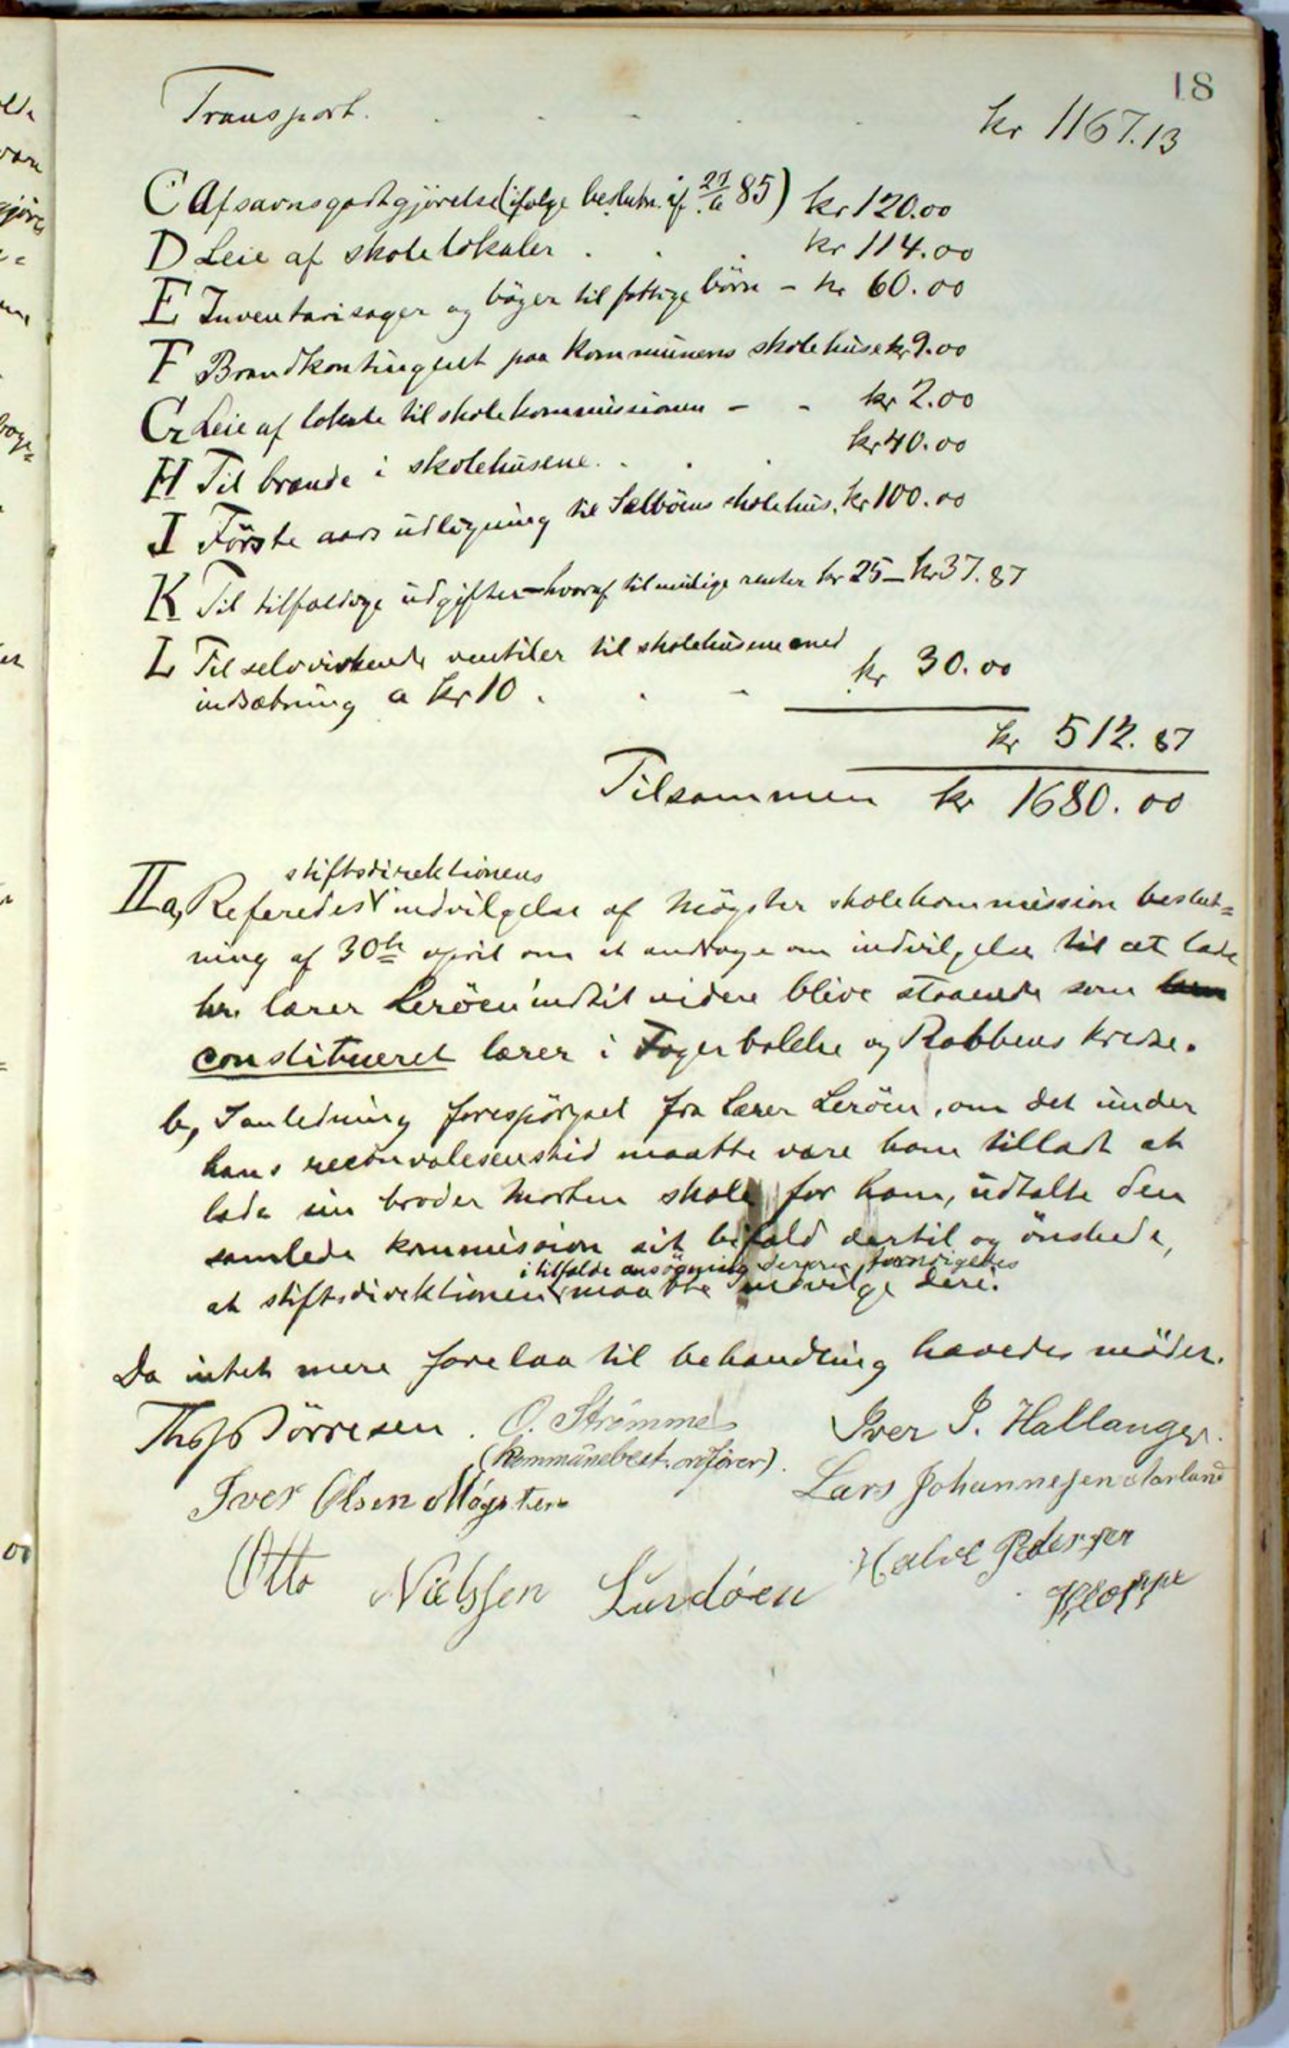 18
Transport. kr 1167.13
C Afsavnsgodtgjörelse (ifölge beslutn. af 27/6 85) kr 120.00
D Leie af skolelokaler . . . kr 114.00
E Inventarisager og böger til fattige börn - kr 60.00
F Brandkontingent paa kommunens skolehuse kr 9.00
G Leie af lokale til skolekommissionen - - kr 2.00
H Til brænde i skolehusene. . . . kr 40.00
I Förste aars udligning til Sælböens skolehus. kr 100.00
K Til tilfældige udgifter - hvoraf til mulige renter kr 25 - kr 37.87
L Til selvvirkende ventiler til skolehusene med
indsætning a kr 10 . . - kr 30.00
kr 512.87
Tilsammen kr 1680.00
stiftsdirektionens
II a, Referedes indvilgelse af Mögster skolekommission beslut=
ning af 30te april om at andrage om indvilgelse til at lade
hr. lærer Leröen indtil videre blive staaende som
constitueret lærer i Fager­ og Rabbens kredse.
b, I anledning forespörgsel fra lærer Leröen, om det under
hans reconvalesenstid maatte være ham tilladt at
lade sin broder Morten skole for ham, udtalte den
samlede kommission sit bifald dertil og önskede,
i tilfælde ansögning derom
at stiftsdirektionen maatte indvilge deri.
Da intet mere forelaa til behandling hævedes mödet.
Ths Törresen. O. Strömme Iver I. Hallanger.
(kommunebest. ordförer).
Iver Olsen Møgster Lars Johannesen
Otto Nielssen Lundöen Halve Pedersen
Kloppe